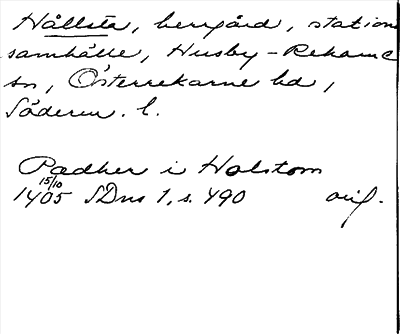 Hållsta, herrgård, stations-
samhälle, Husby-Rekarne
sn, Österrekarne hd,
Söderm. l.
Pædher i Halstom
15/10
1405 SDns 1, s. 490 orig.